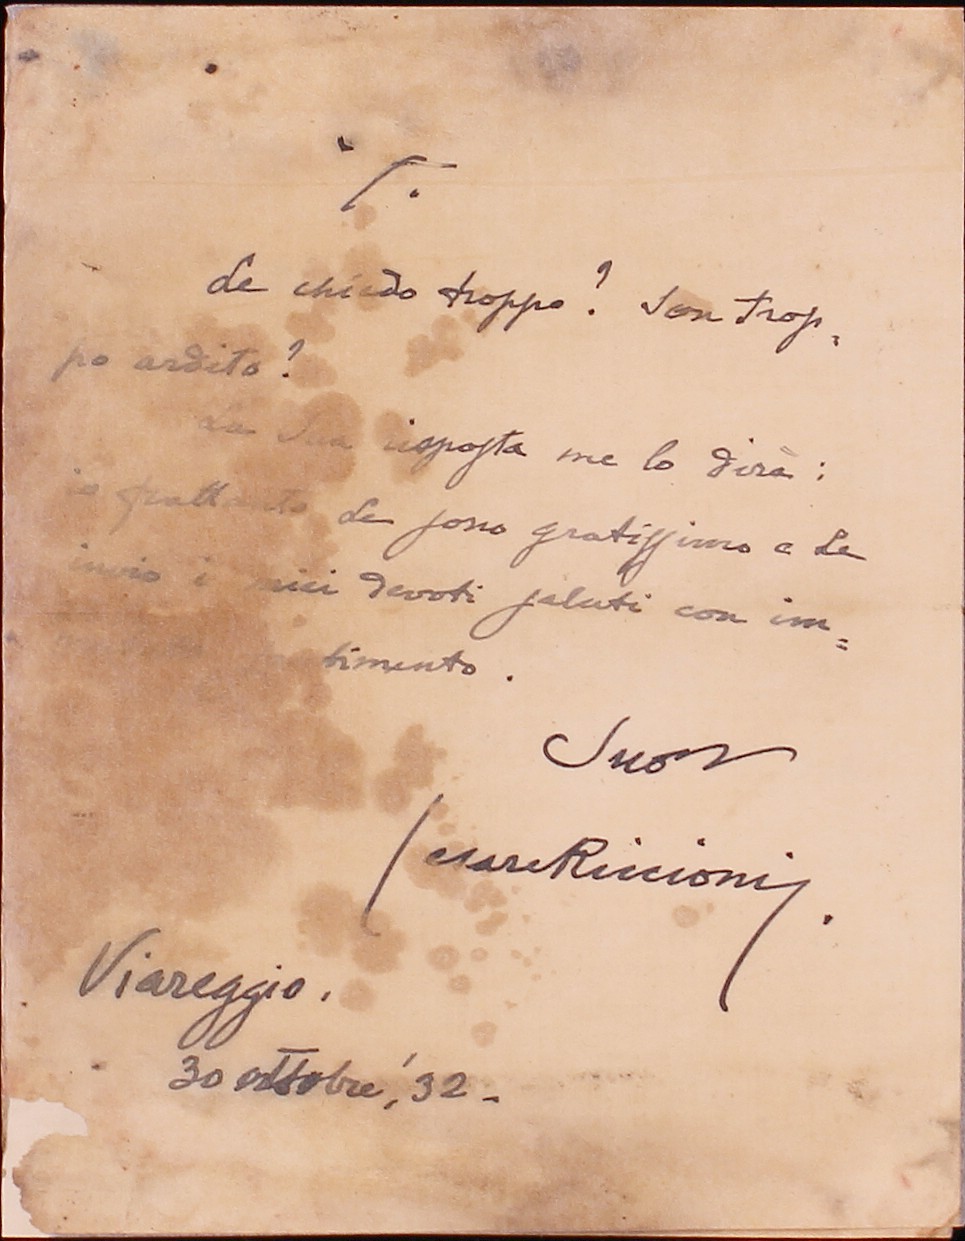 Le chiedo troppo? Son trop=
po ardito?
La Sua risposta me lo dirà:
io frattanto Le sono gratissimo e Le
invio i miei devoti saluti con im=
timento.
Suo
Cesare Riccioni.
Viareggio.
30 ottobre, '32-